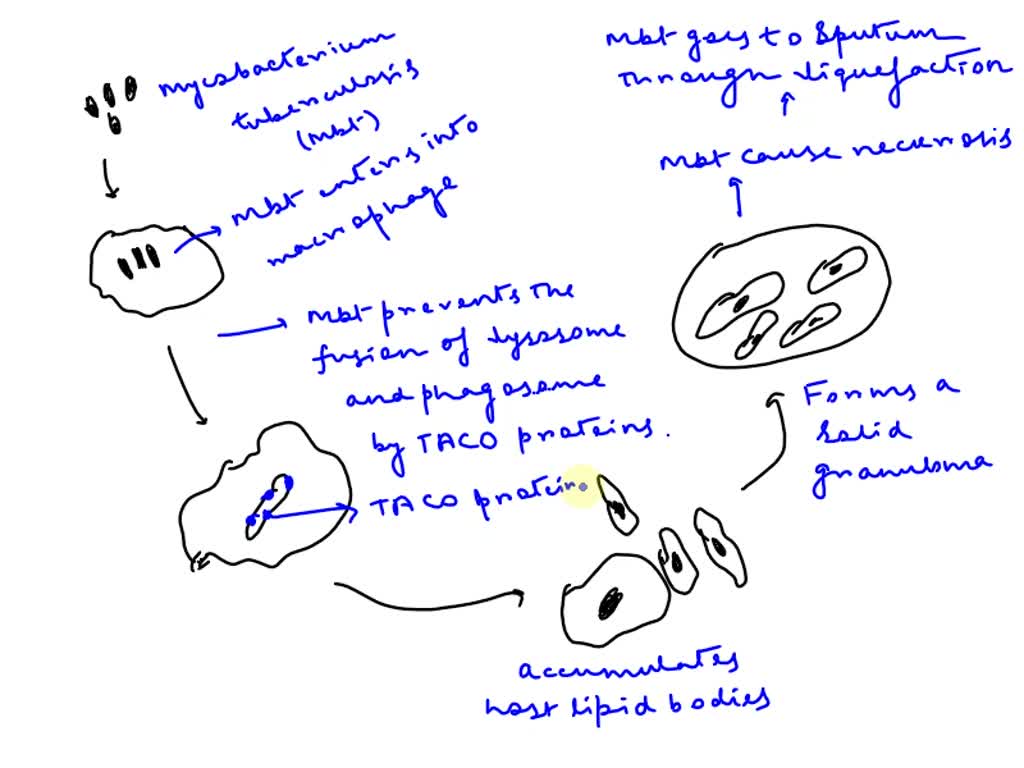 mycobacterium
tuberculosis
(Mbt)
Mbt enters into
macrophage
Mbt prevents the
fusion of lysosome
and phagosome
by TACO proteins.
TACO protein
accumulates
host lipid bodies
Forms a
solid
granuloma
Mbt cause necrosis
Mbt goes to Sputum
through liquefaction